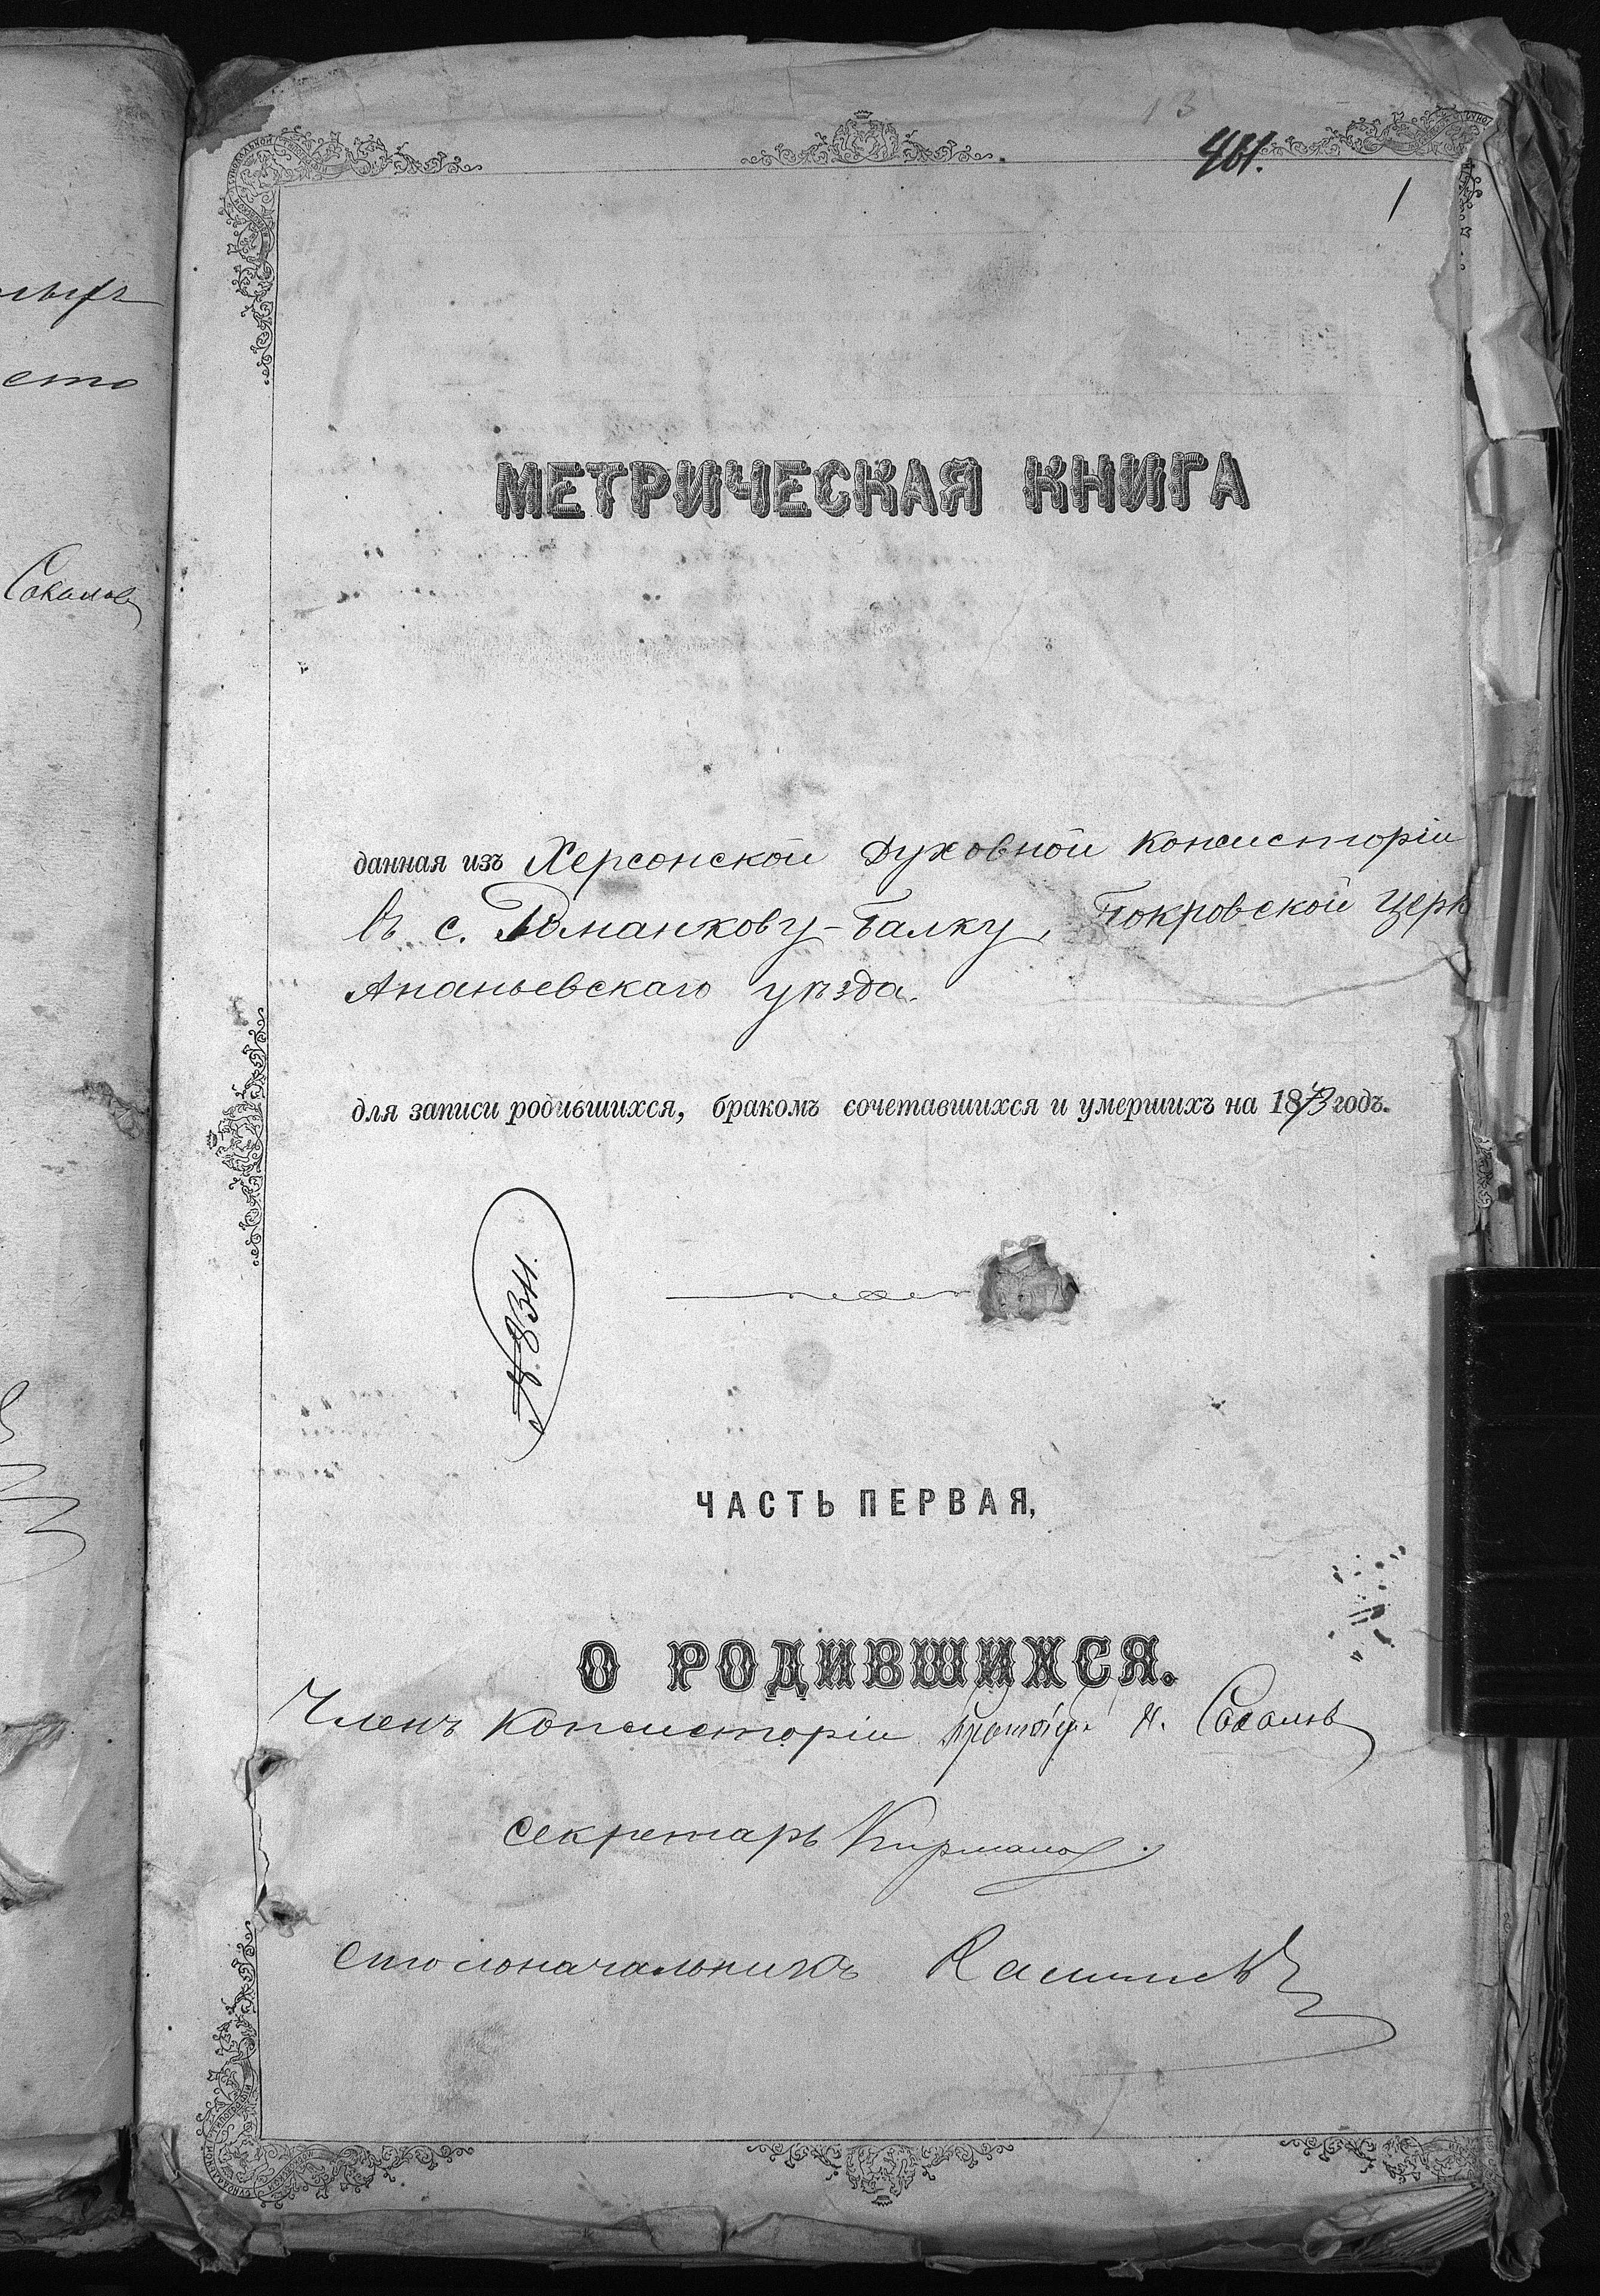 461.
1
МЕТРИЧЕСКАЯ КНИГА
данная изъ Херсонской Духовной Консисторіи
въ с. Романкову-Балку, Покровской Церк
Ананьевскаго уѣзда.
для записи родившихся, бракомъ сочетавшихся и умершихъ на 1873 годъ.
№ 8311.
ЧАСТЬ ПЕРВАЯ,
О РОДИВШИХСЯ.
Членъ Консисторіи Н. Соколовъ
Секретарь
Столоначальникъ
Соколовъ